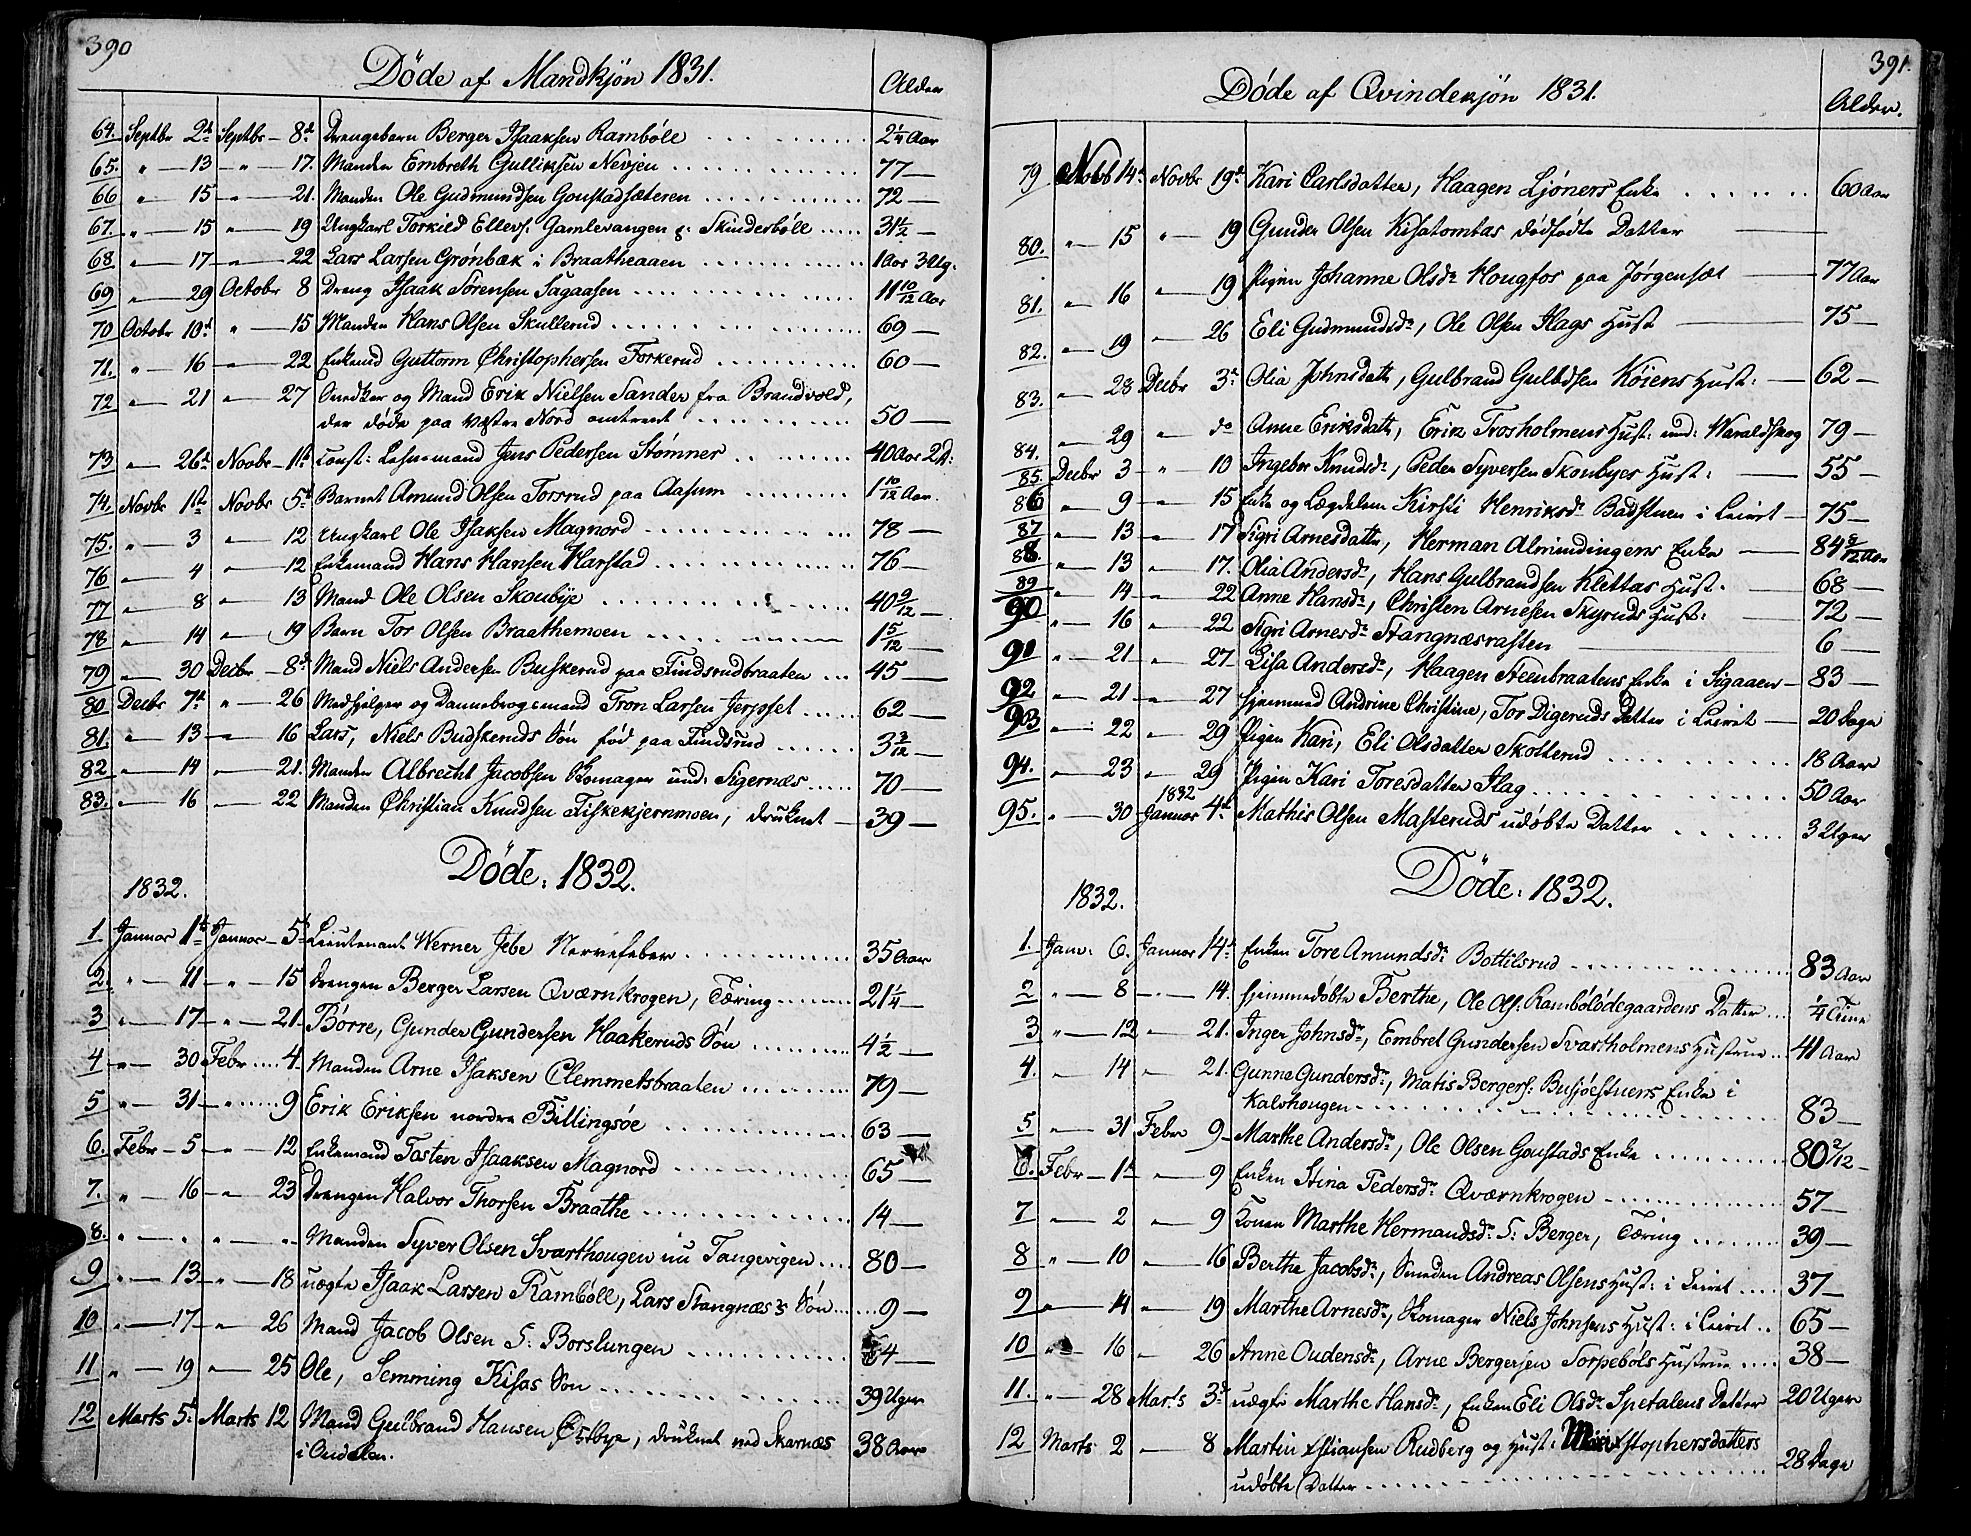 390
Döde af Mandkjön 1831.
Alder
64. Septbr 2d Septbr – 8d Drengebarn Berger Isaaksen Ramböll 2¼ Aar
65. " — 13 — " — 17. Manden Embreth Gulliksen Nevjen 77 —
66 " — 15 " — 21. Manden Ole Gudmundsen Goustadsæteren 72 —
67. " — 15 " — 19 Ungkarl Torkild Ellevs. Gamlevangen Skinderböll 31½ —
68 " — 17 — " — 22 Lars Larsen Grönbæk i Braatheaaen 1 Aar 3 Ug.
69 " — 29 Octobr 8 Dreng Isaak Sörensen Sagaasen 11 10/12 Aar
70 Octobr 10d " — 15 Manden Hans Olsen Skullerud 69 —
71. " — 16 " — 22 Enkemd Guttorm Christophersen Torkerud 60 —
72 " — 21 " — 27 Snedker og Mand Erik Nielsen Sander fra Brandvold,
der döde paa Vestre Nord omtrent 50 —
73 " — 26d Novbr – 1d Const: Lehnsmand Jens Pedersen Stömner 40 Aar 2 D:
74. Novbr 1st Novbr 5d Barnet Amund Olsen Torsrud paa Aasum 1 10/12 Aar.
75. " — 3 " — 12 Ungkarl Ole Isaksen Magnord 78 —
76 " — 4 " — 12 Enkemand Hans Hansen Harstad 76 —
77 " — 8 " — 13 Mand Ole Olsen Skoubye 40 9/12 —
78. " — 14 " — 19 Barn Tor Olsen Braathemoen 1 5/12
79 " — 30 Decbr – 8d Mand Niels Andersen Buskerud paa Findsrudbraaten 45 —
80 Decbr 7d " — 26 Medhjelper og Dannebrogsmand Tron Larsen Jerpset 62 —
81. " — 13 " — 16 Lars, Niels Budskeruds Sön föd paa Findsrud 3 3/12 —
82 " — 14 " — 21. Manden Albrecht Jacobsen Skomager und: Sigernæs 70 —
83. " — 16 " — 22 Manden Christian Knudsen Fiskekjernmoen, druknet 39 —
Döde: 1832.
1832.
1. Januar 1st Januar – 5d Lieutenant Werner Jebe Nervefeber 35 Aar
2 " — 11 — " — 15 Drengen Berger Larsen Qværnkrogen, Tæring 21¼ —
3 " — 17 — " — 21. Börre, Gunder Gundersen Haakeruds Sön 4½ —
4 " — 30 Febr 4 Manden Arne Isaksen Clemmetsbraaten 79 —
5 " — 31 — " 9 Erik Eriksen nordre Billingsöe 63 —
6. Febr – 5 — " — 12 Enkemand Tosten Isaaksen Magnord 65 —
7. " — 16 — " — 23 Drengen Halvor Thorsen Braathe 14 —
8. " — " " — " Manden Syver Olsen Svarthougen nu Tangevigen 80 —
9 " — 13 — " — 18 uægte Isaak Larsen Ramböll, Lars Stangnæs's Sön 9 —
10 " — 17 — " — 26 Mand Jacob Olsen S: Borslungen 64 —
11 " — 19 " — 25 Ole, Semming Kisas Sön 39 Uger
12 Marts 5d Marts 12 Mand Gulbrand Hansen Östbye, druknet ved Skarnæs
i Oudalen. 38 Aar
391.
Döde af Qvindekjön 1831.
Alder.
79 Novbr 14d Novbr 19d Kari Carlsdatter, Haagen Ljöners Enke 60 Aar
80. " — 15 " — 19 Gunder Olsen Kisatomtas dödfödte Datter —
81. " — 16 " — 19 Pigen Johanne Olsdr Hougfos paa Jörgensæt 77 Aar
82. " — 19 " — 26 Eli Gudmundsdr, Ole Olsen Hags Hust 75 —
83. " — 28 Decbr 3d Olia Johnsdattr, Gulbrand Gulbdsen Köiens Hust: 62 —
84. " — 29 " — do Anne Eriksdattr, Erik Trosholmens Hust: und: Varaldskog 79 —
85. Decbr 3 — " — 10 Ingebor Knudsdr, Peder Syversen Skoubyes Hust: 55 —
86 " — 9 " — 15 Enke og Lægdelem Kirsti Henriksdr Badstuen i Leiret 75 —
87 " — 13 " — 17 Sigri Arnesdatter, Herman Almindingens Enke 84 9/12 Aar
88. " — 13 " — 17. Olia Andersdr, Hans Gulbrandsen Klettas Hust: 68 —
89 " — 14 " — 22 Anne Hansdr, Christen Arnesen Skyruds Hust: 72 —
90 " — 16 " — 22 Sigri Arnesdr Stangnæsrasten 6 —
91 " — 21 " — 27. Lisa Andersdr, Haagen Steenbraatens Enke i Sigaaen 83 —
92 " — 21 — " — 27 hjemmed Andrine Christine, Tor Digeruds Datter i Leiret 20 Dage
93 " — 22 " — 29 Pigen Kari, Eli Olsdatter Skotterud 18 Aar
94. " — 23 " — 29 Pigen Kari Toresdatter Hag 50 Aar
1832
95. " — 30 Januar 4d Mathis Olsen Masteruds udöbte Datter 3 Uger
Döde: 1832.
1832.
1. Janu: 6. Januar 14d Enken Tore Amundsdr Bottilsrud 83 Aar
2 " — 8 — " — 14. hjemmedöbte Berthe, Ole Ols: Rambölödegaardens Datter ¼ Time
3 " — 12 " — 21. Inger Johnsdr, Embret Gundersen Svartholmens Hustrue 41 Aar
4. " — 14 " — 21. Gunne Gundersdr, Matis Bergers: Busjöestuers Enke i
Kalvhougen 83 —
5 " — 31 Febr 9 – Marthe Andersdr, Ole Olsen Goustads Enke 80 2/12 —
6. Febr – 1d " — 9 Enken Stina Pedersdr Qværnkrogen 57 —
7 " — 2 " — 9 Konen Marthe Hermandsdr S: Berger, Tæring 39 —
8 " — 10 " — 16 Berthe Jacobsdr, Smeden Andreas Olsens Hust: i Leiret 37 —
9 " — 14 " — 19 Marthe Arnesdr, Skomager Niels Johnsens Hust: i Leiret 65 —
10 " — 16 " — 26 Anne Oudensdr, Arne Bergersen Torpebols Hustrue 38 —
11. " — 28 Marts 3d uægte Marthe Hansdr, Enken Eli Olsdr Spetalens Datter 20 Uger
12 Marts 2 " — 8 Martin Xstiansen Rudberg og Hust: Mari Xstophersdatters
udöbte Datter 28 Dage